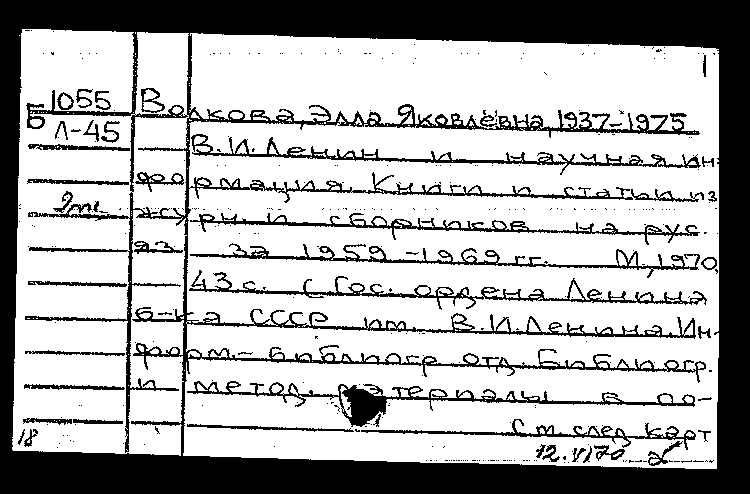 Б 1055
Л-45
Волкова, Элла Яковлевна, 1937-1975
В.И. Ленин и научная ин-
формация. Книги и статьи из
журн. и сборников на рус.
яз. за 1959-1969 гг. М., 1970
43 с. (Гос. ордена Ленина
б-ка СССР им. В.И. Ленина. Ин-
форм.-библиогр. отд. Библиогр.
и метод. материалы в по-
См. след. карт
18
12.VI70